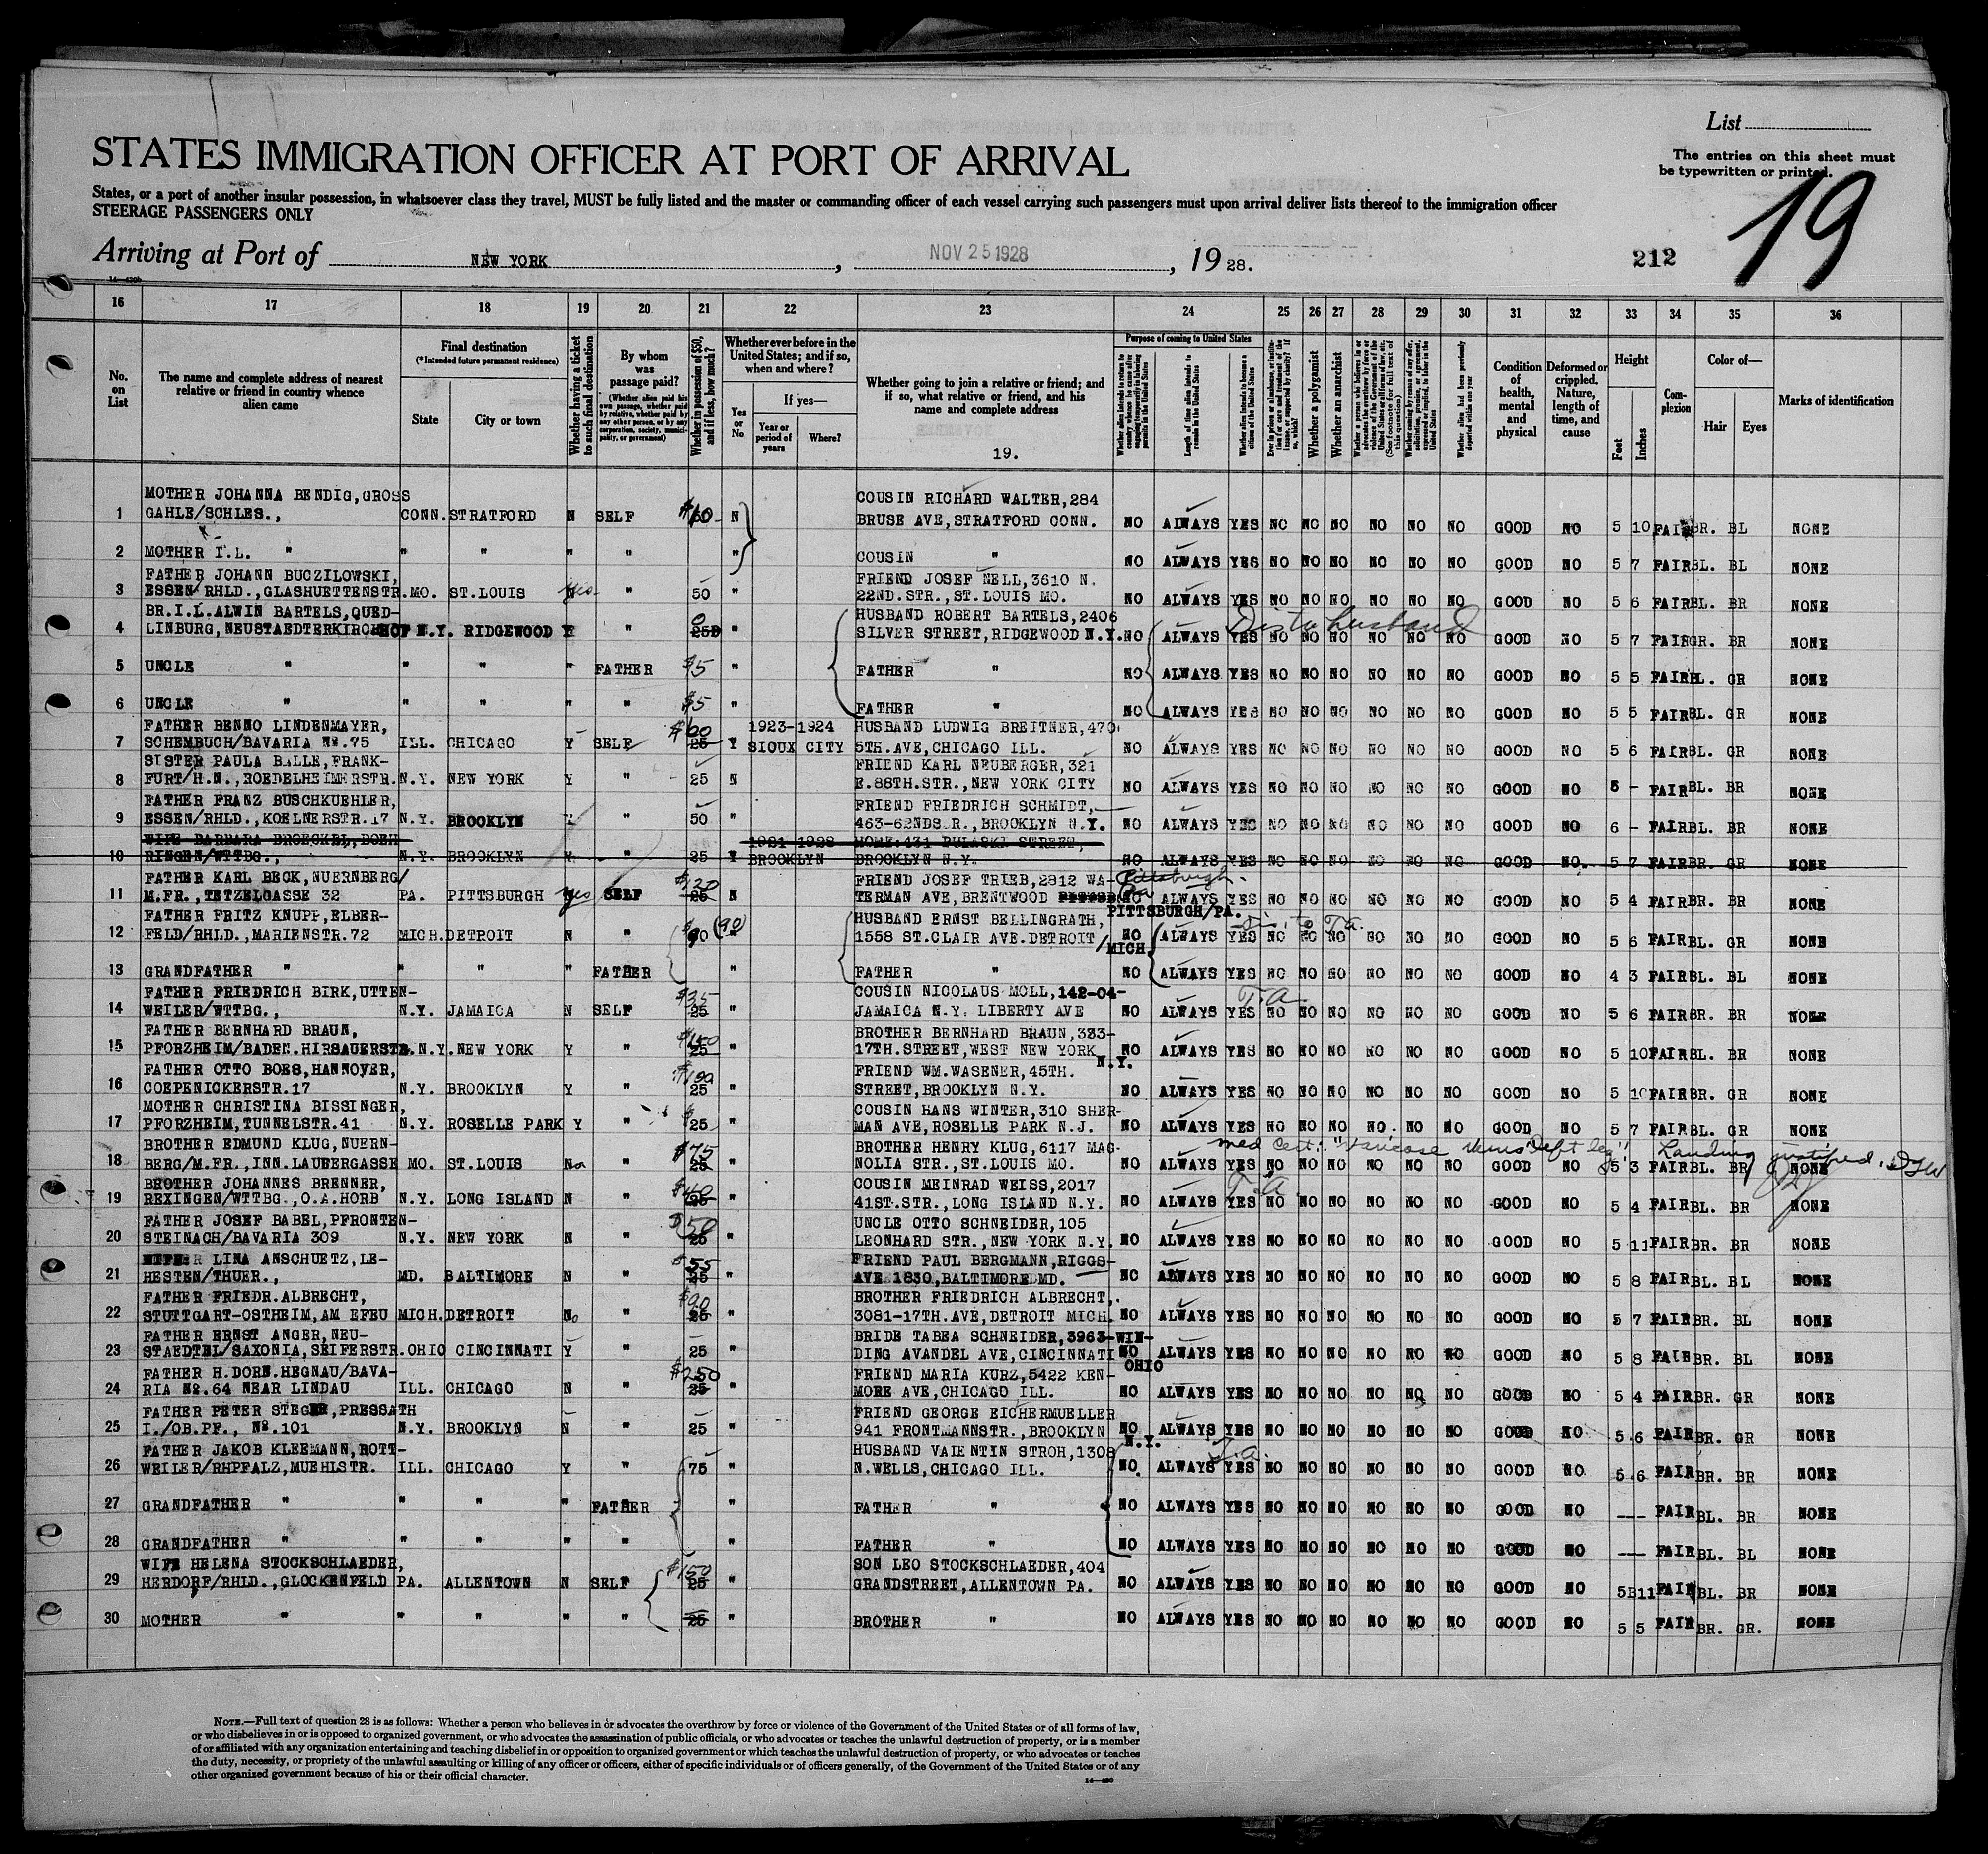 List
STATES IMMIGRATION OFFICER AT PORT OF ARRIVAL
The entries on this sheet must
be typewritten or printed.
States, or a port of another insular possession, in whatsoever class they travel, MUST be fully listed and the master or commanding officer of each vessel carrying such passengers must upon arrival deliver lists thereof to the immigration officer
STEERAGE PASSENGERS ONLY
19
Arriving at Port of NEW YORK, NOV 25 1928, 1928.
212
16 17 18 19 20 21 22 23 24 25 26 27 28 29 30 31 32 33 34 35 36
No. on List
The name and complete address of nearest relative or friend in country whence alien came
Final destination
(*Intended future permanent residence)
State
City or town
Whether having a ticket to such final destination
By whom was passage paid?
(Whether alien paid his own passage, whether paid by relative, whether paid by any other person, or by any corporation, society, municipality, or government)
Whether in possession of $50, and if less, how much?
Whether ever before in the United States; and if so, when and where?
Yes or No
If yes—
Year or period of years
Where?
Whether going to join a relative or friend; and if so, what relative or friend, and his name and complete address
19.
Purpose of coming to United States
Length of time alien intends to remain in the United States
Whether alien intends to become a citizen of the United States
Whether a polygamist
Whether an anarchist
Whether alien had been previously deported within one year
Condition of health, mental and physical
Deformed or crippled. Nature, length of time, and cause
Height
Feet
Inches
Complexion
Color of—
Hair
Eyes
Marks of identification
MOTHER JOHANNA BENDIG, GROSS COUSIN RICHARD WALTER, 284
1 GAHLE/SCHLES., CONN. STRATFORD N SELF N BRUSE AVE, STRATFORD CONN. NO ALWAYS YES NO NO NO NO NO NO GOOD NO 5 10 FAIR BR. BL NONE
2 MOTHER I.L. " " " " " " COUSIN " NO ALWAYS YES NO NO NO NO NO NO GOOD NO 5 7 FAIR BL. BL NONE
FATHER JOHANN BUCZILOWSKI, FRIEND JOSEF NELL, 3610 N.
3 ESSEN/RHLD., GLASHUETTENSTR. MO. ST.LOUIS Yes " 50 " 22ND.STR., ST.LOUIS MO. NO ALWAYS YES NO NO NO NO NO NO GOOD NO 5 6 FAIR BL. BR NONE
BR.I.L. ALWIN BARTELS, QUED- HUSBAND ROBERT BARTELS, 2406
4 LINBURG, NEUSTAEDTERKIRCHHOF N.Y. RIDGEWOOD Y " 0 " SILVER STREET, RIDGEWOOD N.Y. NO ALWAYS YES NO NO NO NO NO NO GOOD NO 5 7 FAIR GR. BR NONE
Dis to husband
5 UNCLE " " " " FATHER $5 " FATHER " NO ALWAYS YES NO NO NO NO NO NO GOOD NO 5 5 FAIR BL. GR NONE
6 UNCLE " " " " " $5 " FATHER " NO ALWAYS YES NO NO NO NO NO NO GOOD NO 5 5 FAIR BL. GR NONE
FATHER BENNO LINDENMAYER, 1923-1924 HUSBAND LUDWIG BREITNER, 470
7 SCHEMBUCH/BAVARIA No.75 ILL. CHICAGO Y SELF $60 25 Y SIOUX CITY 5TH.AVE, CHICAGO ILL. NO ALWAYS YES NO NO NO NO NO NO GOOD NO 5 6 FAIR BL. GR NONE
SISTER PAULA BALLE, FRANK- FRIEND KARL NEUBERGER, 321
8 FURT/H.N., ROEDELHEIMERSTR. N.Y. NEW YORK Y " 25 N E.88TH.STR., NEW YORK CITY NO ALWAYS YES NO NO NO NO NO NO GOOD NO 5 - FAIR BL. BR NONE
FATHER FRANZ BUSCHKUEHLER, FRIEND FRIEDRICH SCHMIDT,
9 ESSEN/RHLD., KOELNERSTR.17 N.Y. BROOKLYN Y " 50 " 463-62NDS R., BROOKLYN N.Y. NO ALWAYS YES NO NO NO NO NO NO GOOD NO 6 - FAIR BL. BR NONE
WIFE BARBARA BROECKEL, BOEH- 1921 1928 HOME: 431 PULASKI STREET,
10 RINGEN/WTTBG., N.Y. BROOKLYN Y " 25 Y BROOKLYN BROOKLYN N.Y. NO ALWAYS YES NO NO NO NO NO NO GOOD NO. 5 7 FAIR BR. GR NONE
FATHER KARL BECK, NUERNBERG/ FRIEND JOSEF TRIEB, 2812 WA- Pittsburgh. Pa
11 M.FR., TETZELGASSE 32 PA. PITTSBURGH yes SELF $120 25 N TERMAN AVE, BRENTWOOD PITTSBURGH/PA. NO ALWAYS YES NO NO NO NO NO NO GOOD NO 5 4 FAIR BR. BR NONE
FATHER FRITZ KNUPP, ELBER- HUSBAND ERNST BELLINGRATH,
12 FELD/RHLD., MARIENSTR.72 MICH. DETROIT N " $90 (90) " 1558 ST.CLAIR AVE.DETROIT/MICH NO ALWAYS YES NO NO NO NO NO NO GOOD NO 5 6 FAIR BL. GR NONE
Dis. to T.a.
13 GRANDFATHER " " " " FATHER " FATHER " NO ALWAYS YES NO NO NO NO NO NO GOOD NO 4 3 FAIR BL. BL NONE
FATHER FRIEDRICH BIRK, UTTEN- COUSIN NICOLAUS MOLL, 142-04- T.a
14 WEILER/WTTBG., N.Y. JAMAICA N SELF $35 25 " JAMAICA N.Y. LIBERTY AVE NO ALWAYS YES NO NO NO NO NO NO GOOD NO 5 6 FAIR BR. BR NONE
FATHER BERNHARD BRAUN, BROTHER BERNHARD BRAUN, 333-
15 PFORZHEIM/BADEN.HIRSAUERSTR. N.Y. NEW YORK Y " 25 " 17TH.STREET, WEST NEW YORK N.Y. NO ALWAYS YES NO NO NO NO NO NO GOOD NO 5 10 FAIR BL. BR NONE
FATHER OTTO BOES, HANNOVER, FRIEND WM.WASENER, 45TH.
16 COEPENICKERSTR.17 N.Y. BROOKLYN Y " 25 " STREET, BROOKLYN N.Y. NO ALWAYS YES NO NO NO NO NO NO GOOD NO 5 10 FAIR BR. GR NONE
MOTHER CHRISTINA BISSINGER, COUSIN HANS WINTER, 310 SHER-
17 PFORZHEIM, TUNNELSTR.41 N.Y. ROSELLE PARK Y " $25 " MAN AVE, ROSELLE PARK N.J. NO ALWAYS YES NO NO NO NO NO NO GOOD NO 5 7 FAIR BL. GR NONE
med Cert: "Varicose Veins Left leg" Landing justified.
BROTHER EDMUND KLUG, NUERN- BROTHER HENRY KLUG, 6117 MAG-
18 BERG/M.FR., INN.LAUFERGASSE MO. ST.LOUIS No " $75 25 " NOLIA STR., ST.LOUIS MO. NO ALWAYS YES NO NO NO NO NO NO GOOD NO 5 3 FAIR BL. BR NONE
BROTHER JOHANNES BRENNER, COUSIN MEINRAD WEISS, 2017 T.a.
19 REXINGEN/WTTBG., O.A.HORB N.Y. LONG ISLAND N " $40 25 " 41ST.STR., LONG ISLAND N.Y. NO ALWAYS YES NO NO NO NO NO NO GOOD NO 5 4 FAIR BL. BR NONE
FATHER JOSEF BABEL, PFRONTEN- UNCLE OTTO SCHNEIDER, 105
20 STEINACH/BAVARIA 309 N.Y. NEW YORK N " $50 25 " LEONHARD STR., NEW YORK N.Y. NO ALWAYS YES NO NO NO NO NO NO GOOD NO 5 11 FAIR BR. BR NONE
LINA ANSCHUETZ, LE- FRIEND PAUL BERGMANN, RIGGS-
21 HESTEN/THUER., MD. BALTIMORE N " $55 25 " AVE 1830, BALTIMORE MD. NO ALWAYS YES NO NO NO NO NO NO GOOD NO 5 8 FAIR BL. BL NONE
FATHER FRIEDR.ALBRECHT, BROTHER FRIEDRICH ALBRECHT,
22 STUTTGART-OSTHEIM, AM EFEU MICH. DETROIT No " $90 25 " 3081-17TH.AVE, DETROIT MICH. NO ALWAYS YES NO NO NO NO NO NO GOOD NO 5 7 FAIR BR. BL NONE
FATHER ERNST ANGER, NEU- BRIDE TABEA SCHNEIDER, 3963-WIN-
23 STAEDTEL/SAXONIA, SEIFERSTR. OHIO CINCINNATI Y " 25 " DING AVANDEL AVE, CINCINNATI OHIO NO ALWAYS YES NO NO NO NO NO NO GOOD NO 5 8 FAIR BR. BL NONE
FATHER H.DORN.HEGNAU/BAVA- FRIEND MARIA KURZ, 5422 KEN-
24 RIA No.64 NEAR LINDAU ILL. CHICAGO N " $250 25 " MORE AVE, CHICAGO ILL. NO ALWAYS YES NO NO NO NO NO NO GOOD NO 5 4 FAIR BR. GR NONE
FATHER PETER STEGER, PRESSATH FRIEND GEORGE EICHERMUELLER
25 I./OB.PF., No.101 N.Y. BROOKLYN N " 25 " 941 FRONTMANNSTR., BROOKLYN N.Y. NO ALWAYS YES NO NO NO NO NO NO GOOD NO 5 6 FAIR BR. GR NONE
FATHER JAKOB KLEEMANN, ROTT- HUSBAND VALENTIN STROH, 1308 T.a.
26 WEILER/RHPFALZ, MUEHLSTR. ILL. CHICAGO Y " 75 " N.WELLS, CHICAGO ILL. NO ALWAYS YES NO NO NO NO NO NO GOOD NO 5 6 FAIR BR. BR NONE
27 GRANDFATHER " " " " FATHER " FATHER " NO ALWAYS YES NO NO NO NO NO NO GOOD NO --- FAIR BL. BR NONE
28 GRANDFATHER " " " " " " FATHER " NO ALWAYS YES NO NO NO NO NO NO GOOD NO --- FAIR BL. BL NONE
WIFE HELENA STOCKSCHLAEDER, SON LEO STOCKSCHLAEDER, 404
29 HERDORF/RHLD., GLOCKENFELD PA. ALLENTOWN N SELF $150 25 " GRANDSTREET, ALLENTOWN PA. NO ALWAYS YES NO NO NO NO NO NO GOOD NO 5 11 FAIR BL. BR NONE
30 MOTHER " " " " " 25 " BROTHER " NO ALWAYS YES NO NO NO NO NO NO GOOD NO 5 5 FAIR BR. GR. NONE
NOTE.—Full text of question 28 is as follows: Whether a person who believes in or advocates the overthrow by force or violence of the Government of the United States or of all forms of law,
or who disbelieves in or is opposed to organized government, or who advocates the assassination of public officials, or who advocates or teaches the unlawful destruction of property, or is a member
of or affiliated with any organization entertaining and teaching disbelief in or opposition to organized government or which teaches the unlawful destruction of property, or who advocates or teaches
the duty, necessity, or propriety of the unlawful assaulting or killing of any officer or officers, either of specific individuals or of officers generally, of the Government of the United States or of any
other organized government because of his or their official character.
14—430